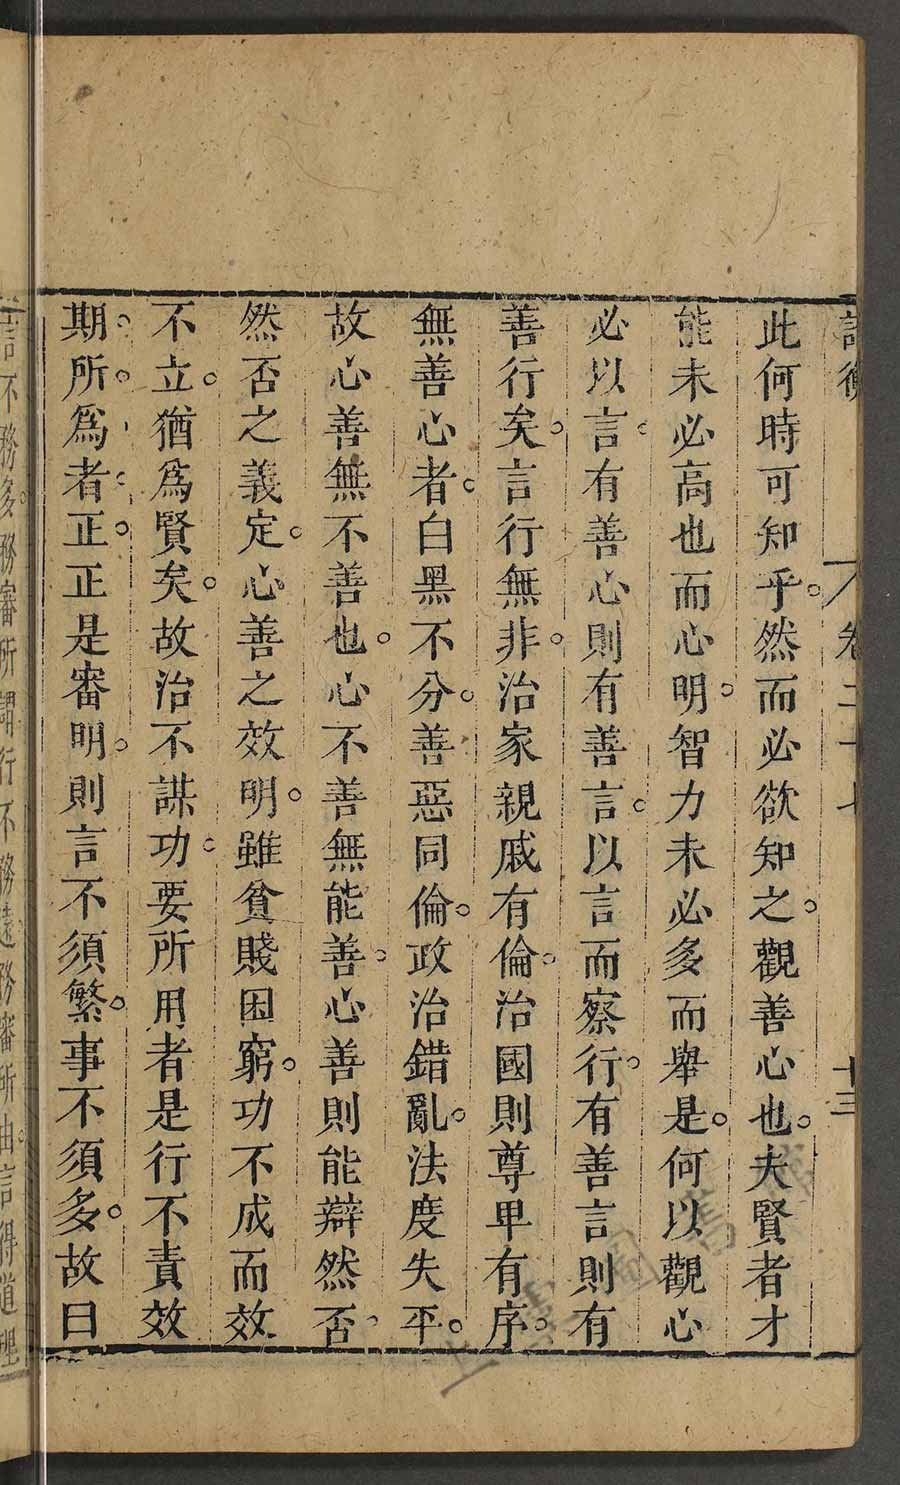 論衡 卷二十七 十三
此何時可知乎。然而必欲知之。觀善心也。夫賢者才
能未必高也而心明。智力未必多而舉是。何以觀心
必以言。有善心則有善言。以言而察行。有善言則有
善行矣。言行無非。治家親戚有倫。治國則尊卑有序。
無善心者。白黑不分。善惡同倫。政治錯亂。法度失平。
故心善無不善也。心不善無能善。心善則能辯然否。
然否之義定。心善之效明。雖貧賤困窮。功不成而效
不立。猶爲賢矣。故治不謀功。要所用者是行不責效
期。所。爲者。正。正是審明。則言不須繁。事不須多。故曰
言不務多。務審所謂行不務遠務審所由。言得道理